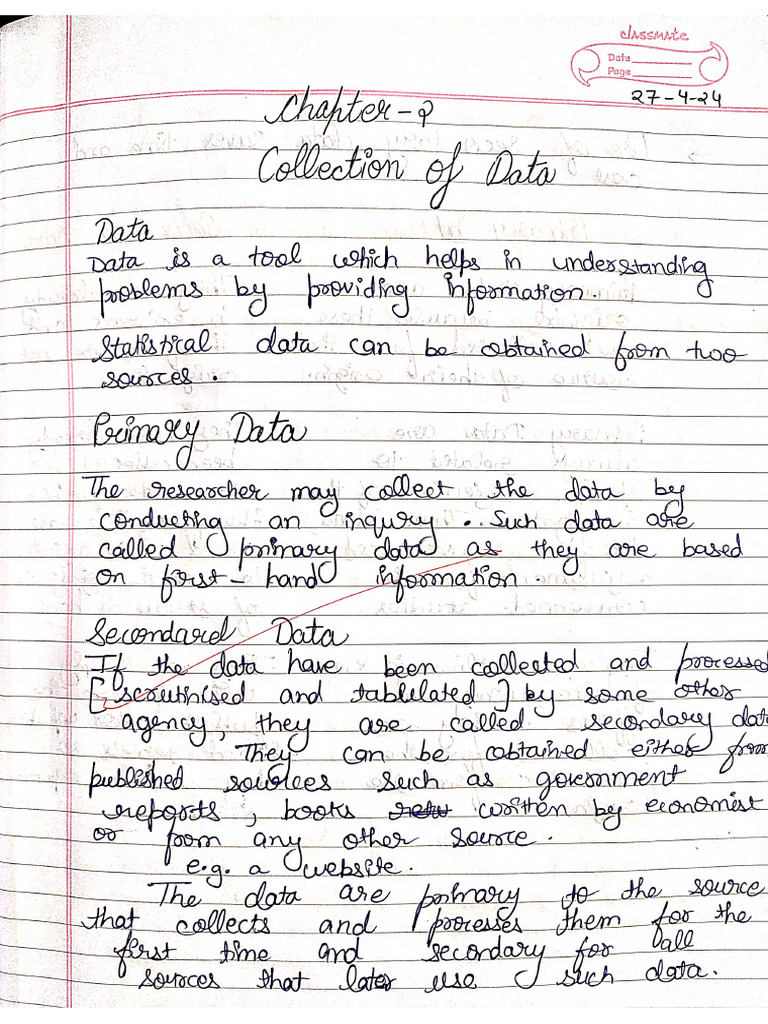 classmate
Date
Page
27-4-24
Chapter-2
Collection of Data
Data
Data is a tool which helps in understanding
problems by providing information
Statistical data can be obtained from two
sources.
Primary Data
The researcher may collect the data by
conducting an inqury. Such data are
called primary data as they are based
on first-hand information.
Secondared Data
If the data have been collected and processed
[scrutinised and tablulated] by some other
agency, they are called secondary data
They can be obtained either from
published sources such as government
reports, books written by economist
or from any other source.
e.g. a website.
The data are primary to the source
that collects and processes them for the
first time and secondary for all
sources that later use such data.